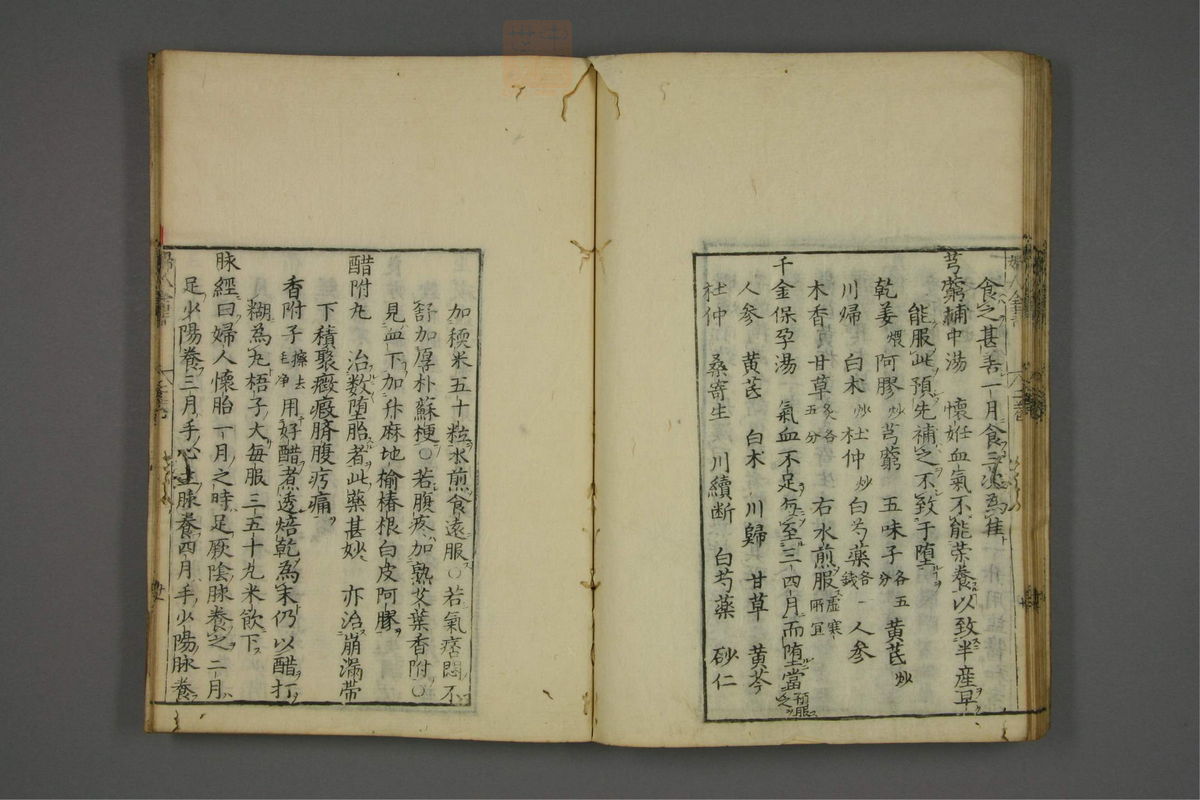 食之甚善一月食三次為佳
芎藭補中湯 懷妊血氣不能荣養以致半産早
能服此預先補之不致于堕
乾姜煨 阿膠炒 芎藭 五味子各五分 黄芪炒
川帰 白术炒 杜仲炒 白芍藥各一錢 人参
木香 甘草炙各五分 右水煎服虚寒所宜
千金保孕湯 氣血不足 至三四月而堕當預服之
人参 黄芪 白术 川歸 甘草 黄芩
杜仲 桑寄生 川續断 白芍藥 砂仁
加糯米五十粒水煎食遠服〇若氣痞悶不
舒加厚朴蘇梗〇若腹疼加熟艾葉香附〇
見血下加升麻地榆椿根白皮阿膠
醋附丸 治数堕胎者此藥甚妙 亦治崩漏帯
下積聚癥瘕臍腹疞痛
香附子擦去毛净 用好醋煮透焙乾為末仍以醋打
糊為丸梧子大每服三五十丸米飲下
脉經曰婦人懷胎一月之時足厥陰脉養之二月
足少陽養三月手心主脉養四月手少陽脉養